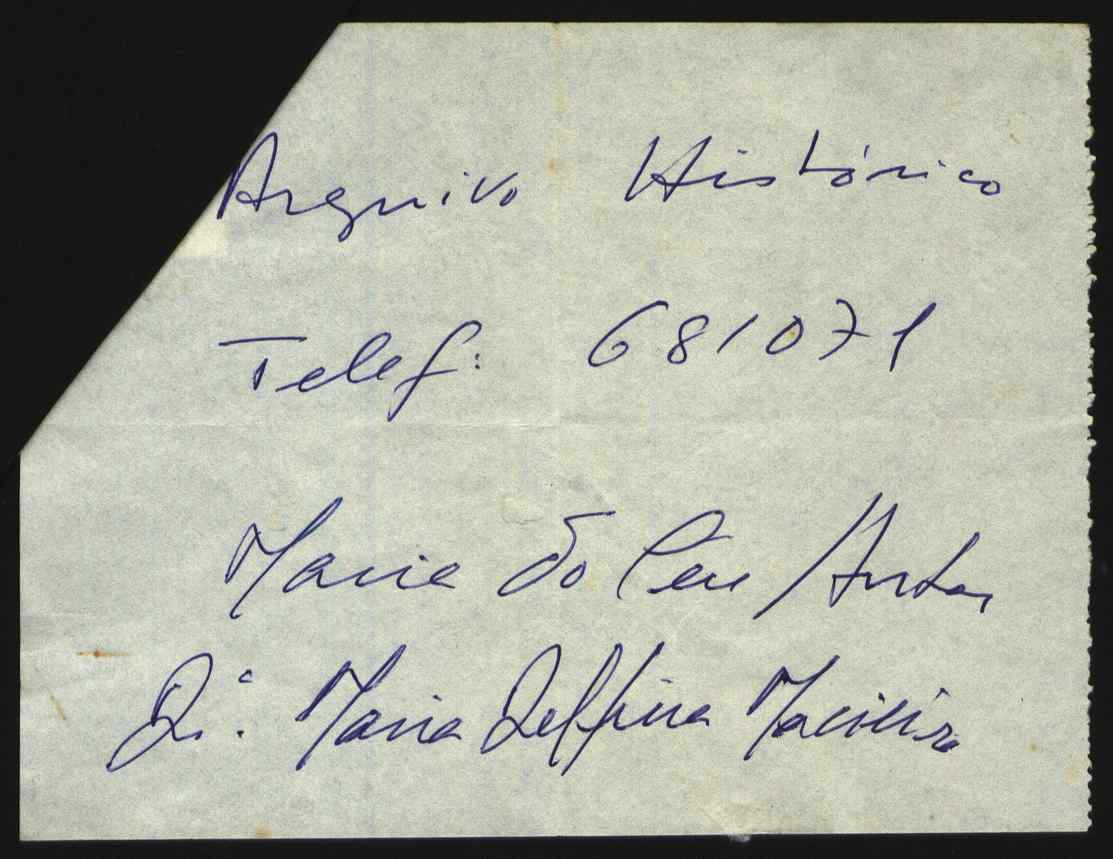 Arquivo Histórico
Telef: 681071
Maria do Céu Antas
D.ª: Maria Delfina Macieira